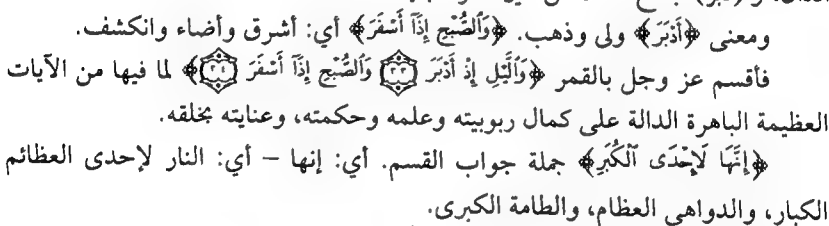 ومعنى ﴿أَدْبَرَ﴾ ولى وذهب. ﴿وَٱلصُّبْحِ إِذَآ أَسْفَرَ﴾ أي: أشرق وأضاء وانكشف.
فأقسم عز وجل بالقمر ﴿وَٱلَّيْلِ إِذْ أَدْبَرَ ٣٣ وَٱلصُّبْحِ إِذَآ أَسْفَرَ ٣٤﴾ لما فيها من الآيات
العظيمة الباهرة الدالة على كمال ربوبيته وعلمه وحكمته، وعنايته بخلقه.
﴿إِنَّهَا لَإِحْدَى ٱلْكُبَرِ﴾ جملة جواب القسم. أي: إنها – أي: النار لإحدى العظائم
الكبار، والدواهي العظام، والطامة الكبرى.